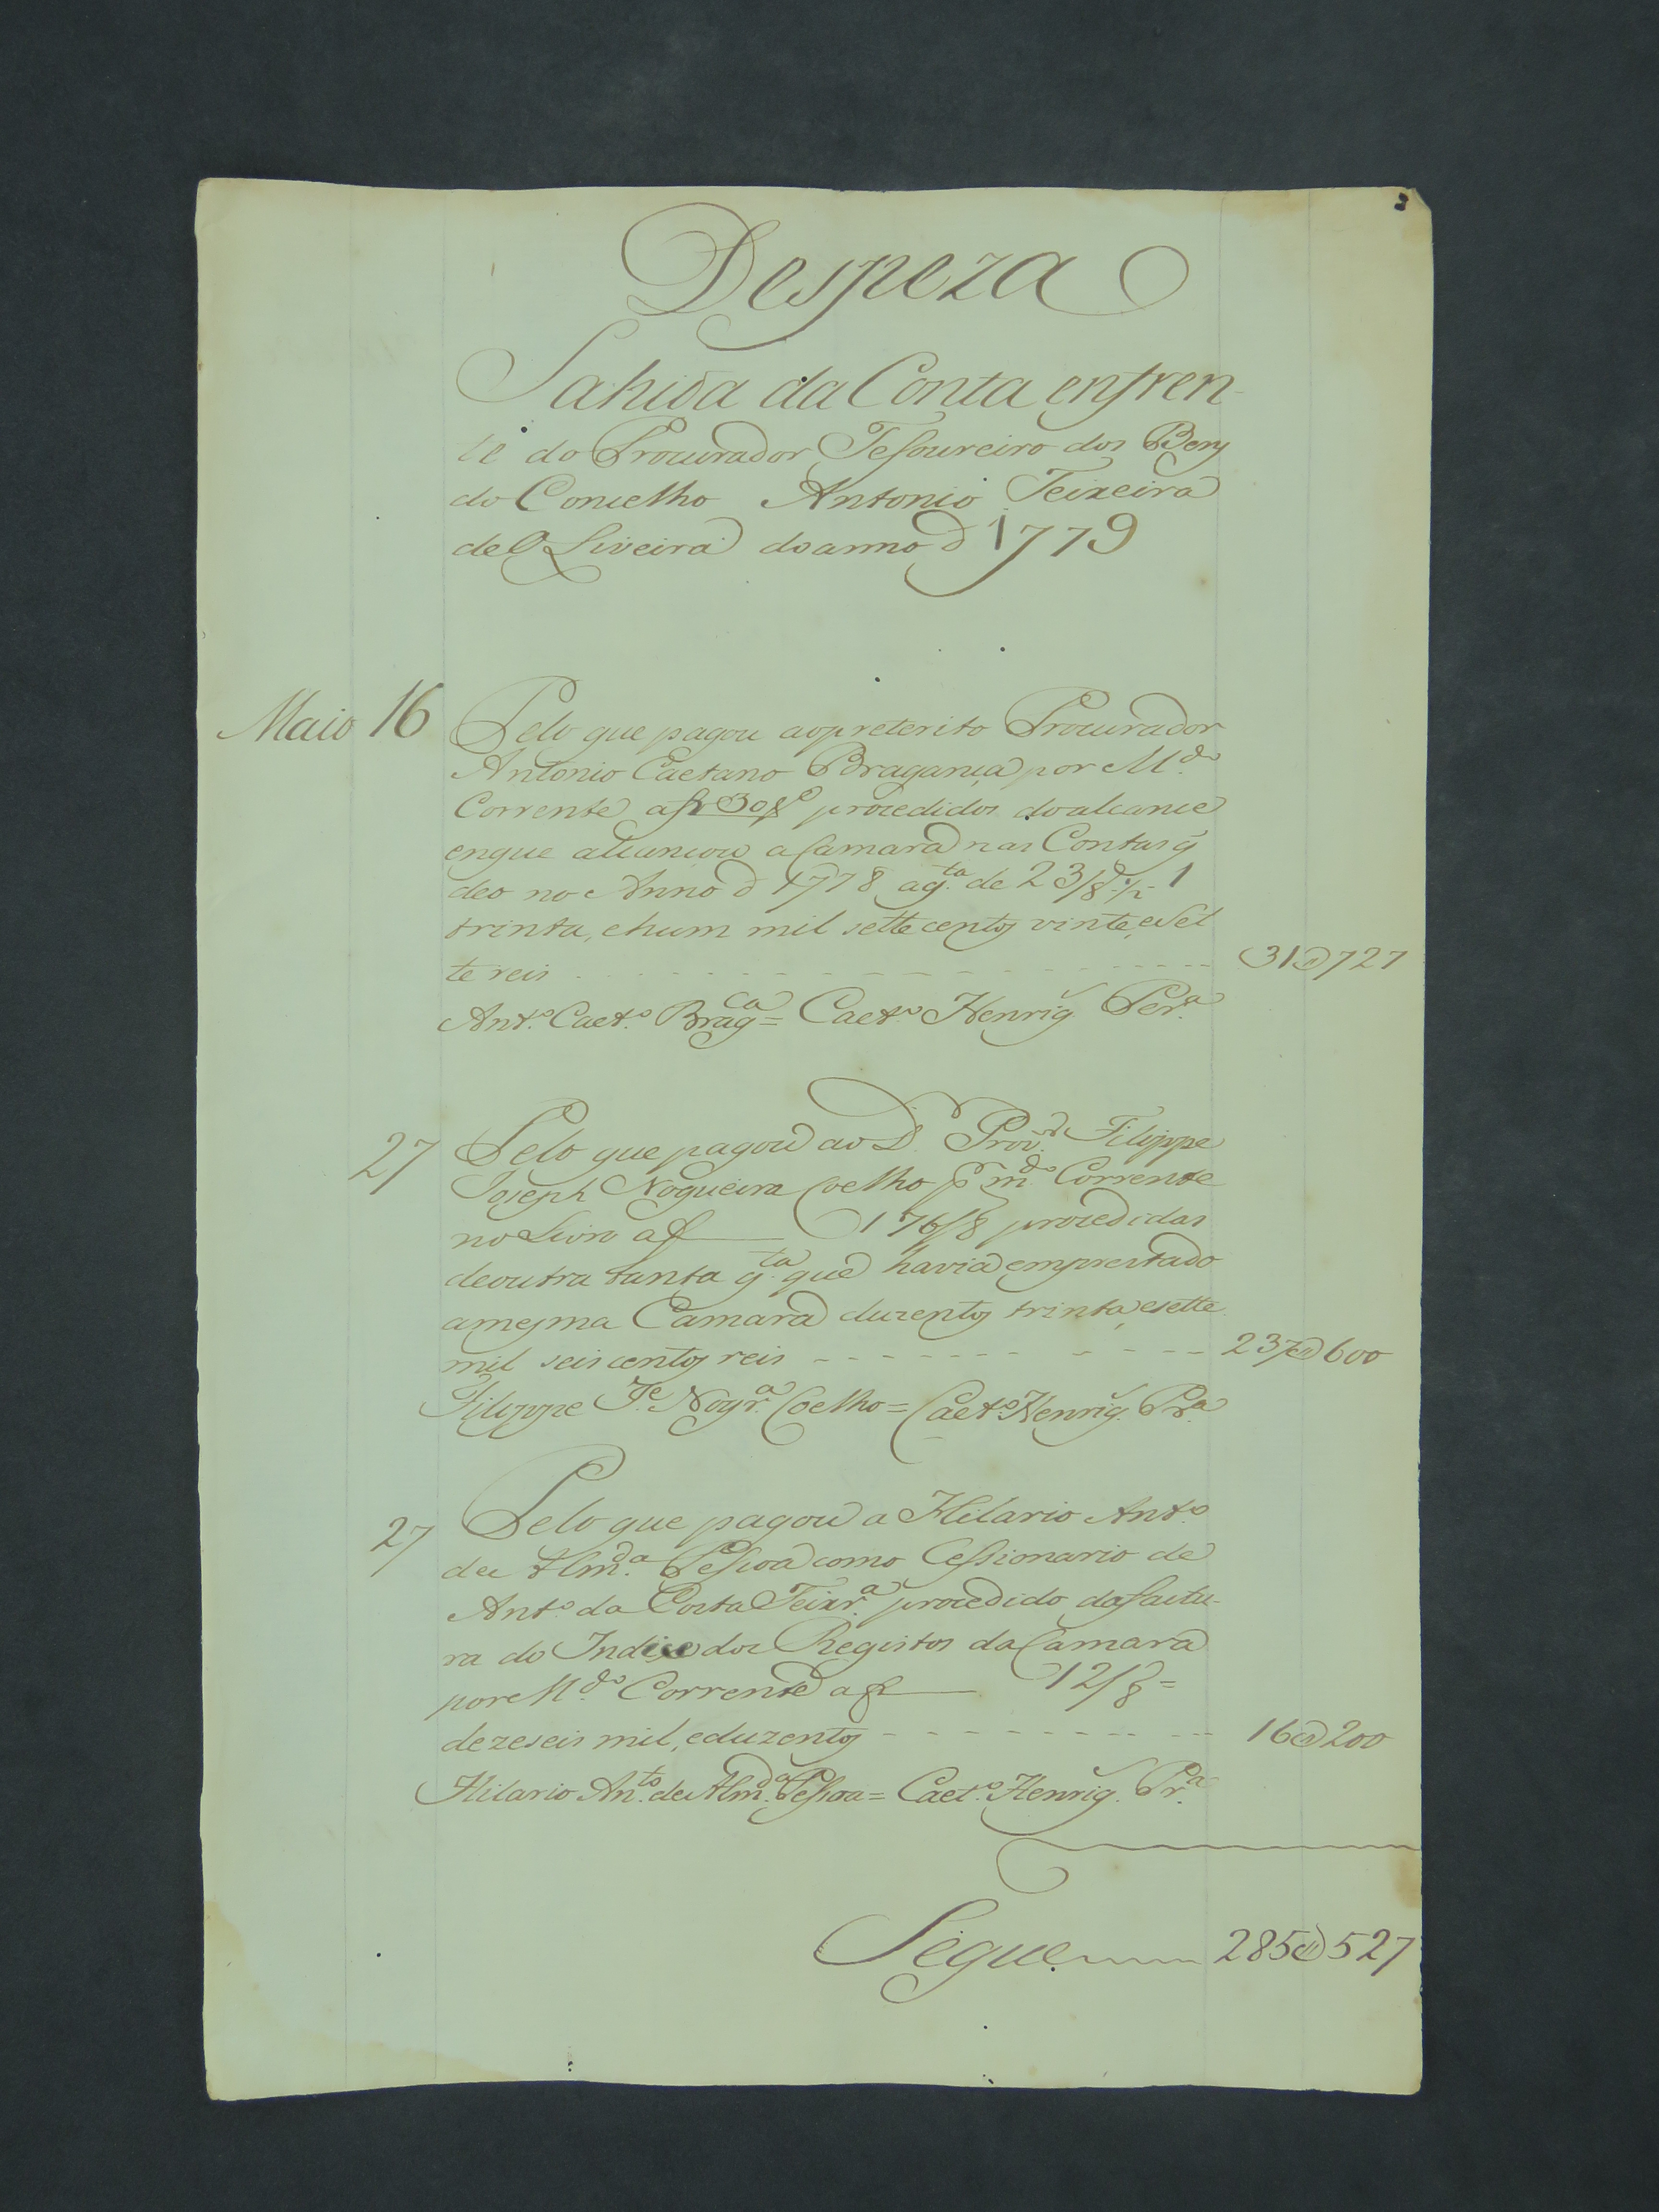 3
Despeza
Sahida da Conta enfren-
te do Procurador Tesoureiro dos Bens
do Concelho Antonio Teixeira
de Oliveira do anno d 1779
Maio 16 Pelo que pagou ao preterito Procurador
Antonio Caetano Bragança por M.do
Corrente a f 308 procedidos do alcance
en que alcançou a Camara nas Contas q̃
deo no Anno d 1778 a q.ta de 23/8.as ½ 1
trinta, e hum mil sette centos vinte, e Set
te reis - - - - - - - - - - 31@727
Ant.o Caet.o Brag.ca = Caet.o Henriq. Per.a
27 Pelo que pagou ao D. Prov.or Filippe
Joseph Nogueira Coelho p m.do Corrente
no Livro a f 176/8 procedidas
de outra tanta q.ta que havia emprestado
a mesma Camara duzentos trinta, e sette
mil seis centos reis - - - - - - - - 237@600
Filippe Je. Nogr.a Coelho = Caet.o Henriq. Pr.a
27 Pelo que pagou a Hilario Ant.o
de Alm.da Pessoa como Cessionario de
Ant.o da Costa Teixr.a procedido da factu-
ra do Indice dos Registos da Camara
por M.do Corrente a f 12/8 =
dezeseis mil, e duzentos - - - - - - - - 16@200
Hilario An.to de Alm.da Pessoa = Caet.o Henriq. Pr.a
Segue 285@527